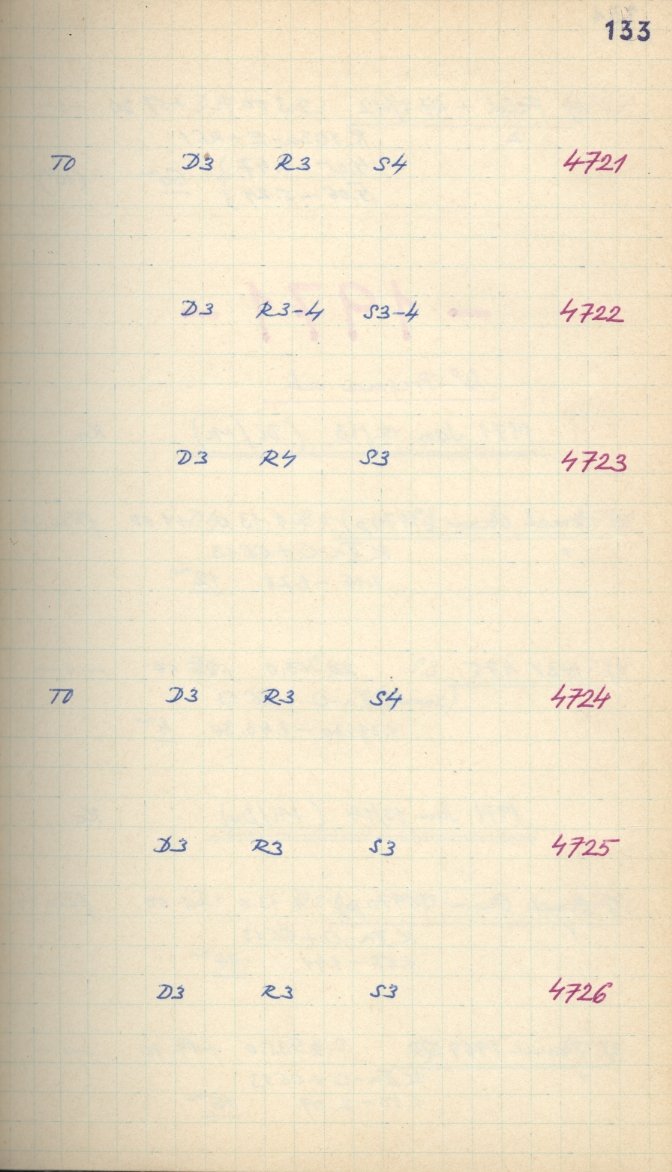 133
TO D3 R3 S4 4721
D3 R3-4 S3-4 4722
D3 R4 S3 4723
TO D3 R3 S4 4724
D3 R3 S3 4725
D3 R3 S3 4726